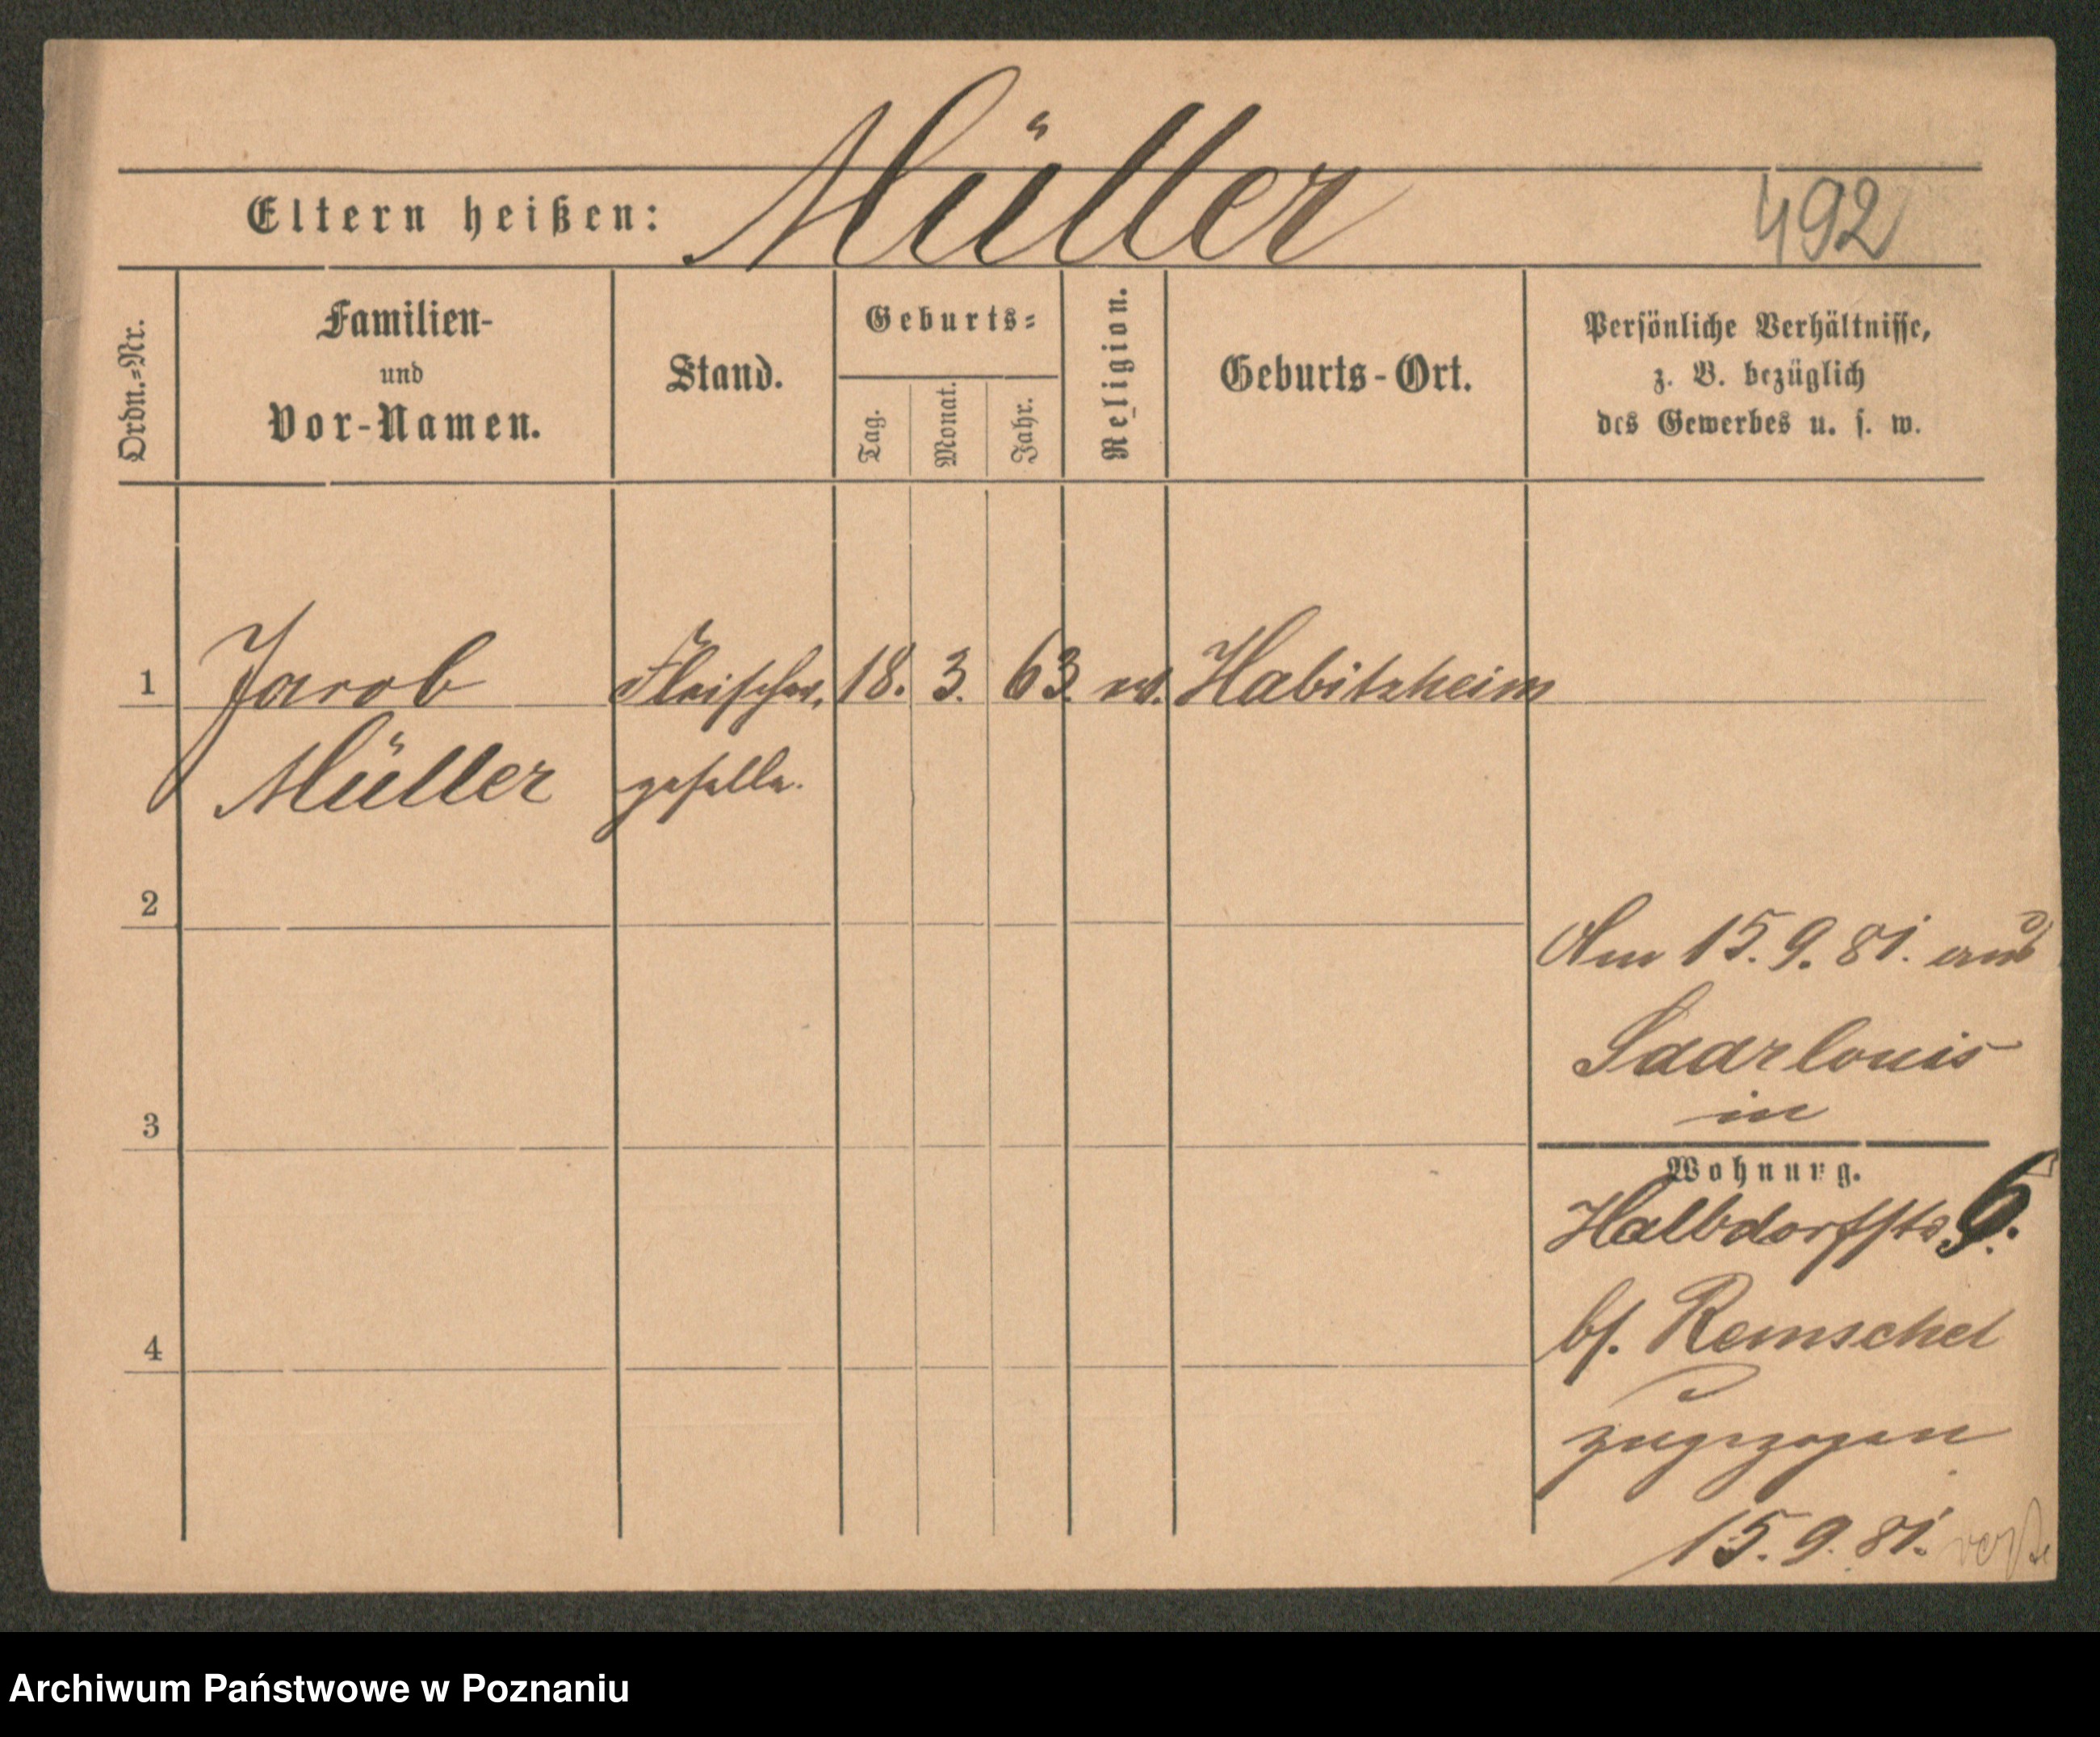 Müller
Eltern heißen:
492
Ordn.=Nr.
Familien-
und
Vor-Namen.
Stand.
Geburts=
Tag.
Monat.
Jahr.
Religion.
Geburts-Ort.
Persönliche Verhältnisse,
z. B. bezüglich
des Gewerbes u. s. w.
1
Jacob
Fleischer,
18.
3.
63.
Habitzheim
Müller
geselle.
2
Am 15. 9. 81. aus
Saarlouis
in
3
Wohnung.
Halbdorfstr 6.
bf. Remschel
4
zugezogen
15. 9. 81.
Archiwum Państwowe w Poznaniu